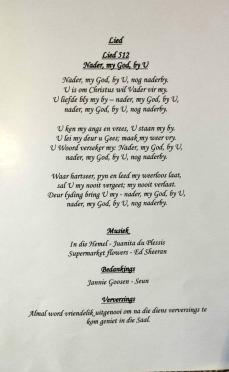 Lied
Lied 512
Nader, my God, by U
Nader, my God, by U, nog naderby.
U is om Christus wil Vader vir my.
U liefde bly my by – nader, my God, by U,
nader, my God, by U, nog naderby.
U ken my angs en vrees, U staan my by.
U lei my deur u Gees; maak my weer vry.
U Woord verseker my: Nader, my God, by U,
nader, my God, by U, nog naderby.
Waar hartseer, pyn en leed my weerloos laat,
sal U my nooit vergeet; my nooit verlaat.
Deur lyding bring U my - nader, my God, by U,
nader, my God, by U, nog naderby.
Musiek
In die Hemel - Juanita du Plessis
Supermarket flowers - Ed Sheeran
Bedankings
Jannie Goosen - Seun
Verversings
Almal word vriendelik uitgenooi om na die diens verversings te
kom geniet in die Saal.